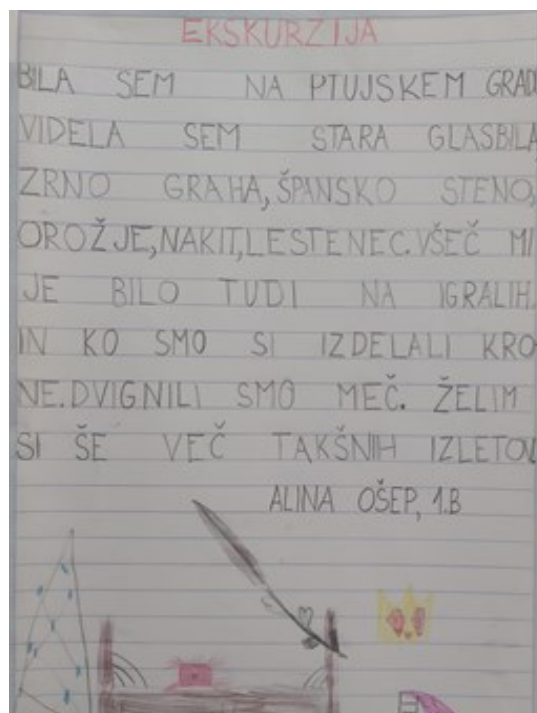 EKSKURZIJA
BILA SEM NA PTUJSKEM GRADU
VIDELA SEM STARA GLASBILA
ZRNO GRAHA, ŠPANSKO STENO,
OROŽJE, NAKIT, LESTENEC. VŠEČ MI
JE BILO TUDI NA IGRALIH.
IN KO SMO SI IZDELALI KRO
NE. DVIGNILI SMO MEČ. ŽELIM
SI ŠE VEČ TAKŠNIH IZLETOV
ALINA OŠEP, 1.B